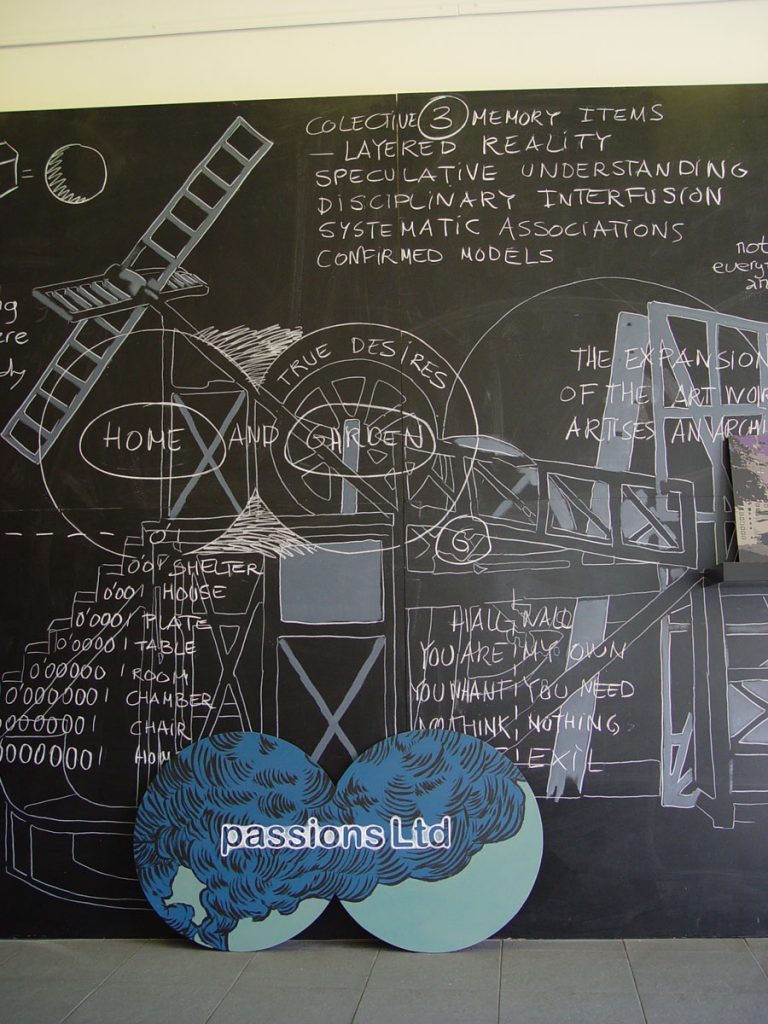 COLECTIVE 3 MEMORY ITEMS
— LAYERED REALITY
SPECULATIVE UNDERSTANDING
DISCIPLINARY INTERFUSION
SYSTEMATIC ASSOCIATIONS
CONFIRMED MODELS
=
not
TRUE DESIRES
HOME AND GARDEN
THE EXPANSION
OF THE ART WOR
ARTISES AN ARCHI
00' SHELTER
0'00 1 HOUSE
0'0000 PLATE
0'0000 1 TABLE
0'00000 1 ROOM
0'000000 1 CHAMBER
0000000 1 CHAIR
0000000 1 HOM
YOU ARE MY OWN
YOU WHANT YOU NEED
NO THINK NOTHING
passions Ltd